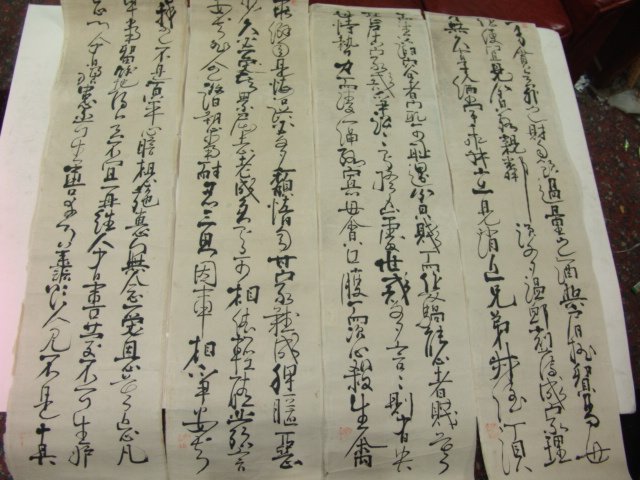 勿貪意外之財勿飲過量之酒與肩挑貿易毋
佔便宜見貧苦親鄰須多溫卹刻薄成家理
無久享倫常乖舛立見消亡兄弟叔侄須
富貴而生諂容者最可恥遇貧窮而作驕態者賤莫
居家戒爭訟訟則終凶處世戒多言言則多失
恃勢力而凌逼孤寡毋貪口腹而恣殺生禽
乖僻自是悔誤必多頹惰自甘家道難成狎暱惡
少久必受其累屈志老成急則可相依輕聽發言
安知非人之譖訴當忍耐三思因事相爭安知
非我之不是須平心暗想施惠無念受恩莫忘凡
事當留餘地得意不宜再往人有喜慶不可生妒
忌心人有禍患不可生喜幸心善欲人見不是真